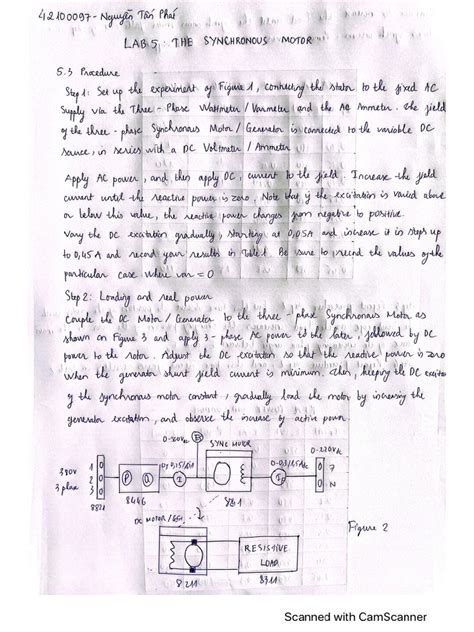 42100097 - Nguyễn Tấn Phát
LAB 5: THE SYNCHRONOUS MOTOR
5.3 Procedure
Step 1: Set up the experiment of Figure 1, connecting the stator to the fixed AC
Supply via the Three - Phase Wattmeter / Varmeter and the AC Ammeter. The field
of the three - phase Synchronous Motor / Generator is connected to the variable DC
source, in series with a DC Voltmeter / Ammeter
Apply AC power, and then apply DC, current to the field. Increase the field
current until the reactive power is zero. Note that if the excitation is varied above
or below this value, the reactive power changes from negative to positive.
Vary the DC excitation gradually, starting at 0,05A and increase it in steps up
to 0,45A and record your results in Table 1. Be sure to record the values of the
particular case where var = 0
Step 2: Loading and real power
Couple the DC Motor / Generator to the three - phase Synchronous Motor as
shown on Figure 3 and apply 3 - phase AC power to the later, followed by DC
power to the rotor. Adjust the DC excitation so that the reactive power is zero
when the generator shunt field current is minimum. Then, keeping the DC excitation
of the synchronous motor constant, gradually load the motor by increasing the
generator excitation, and observe the increase of active power
SYNC MOTOR
0-220Vdc
380V 1 2 3
3 phase
P Q
7
N
8821
8446
8241
DC MOTOR / GEN
Figure 2
RESISTIVE
LOAD
8211
8311
Scanned with CamScanner